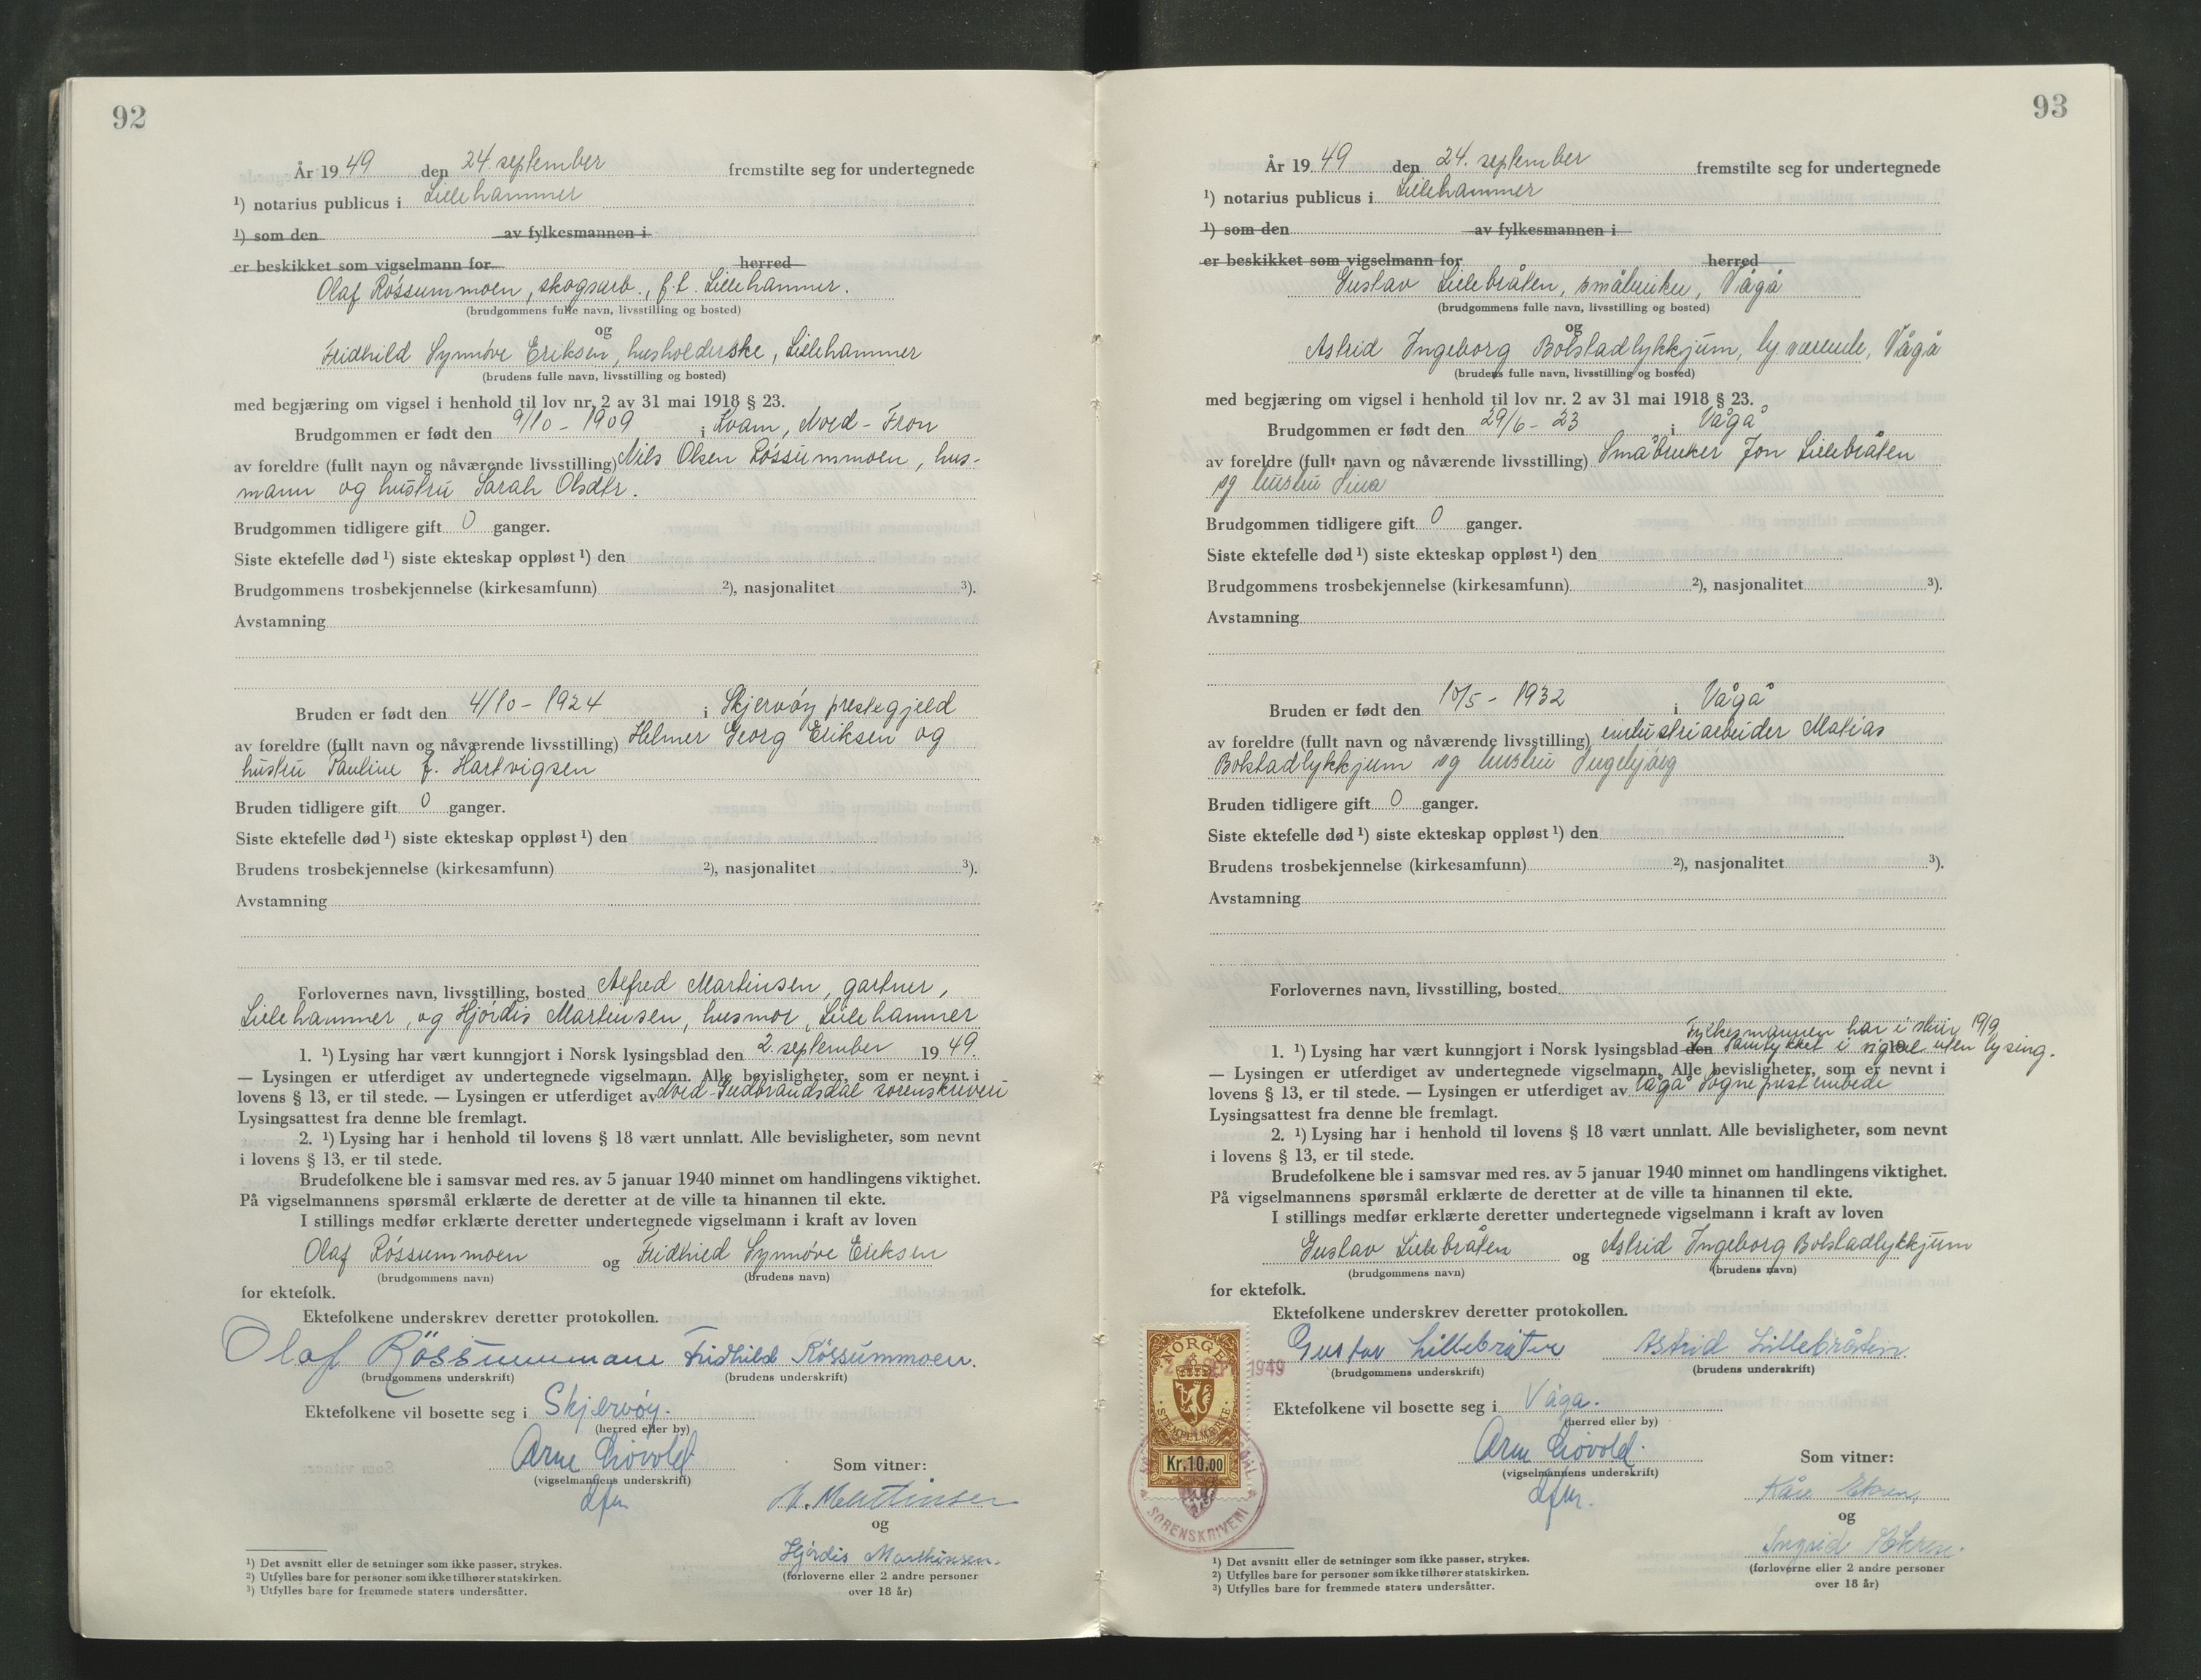 92
År 1949 den 24. september fremstilte seg for undertegnede
¹) notarius publicus i Lillehammer
¹) som den av fylkesmannen i
er beskikket som vigselmann for herred
Olaf Røssummoen, skogsarb., f.t. Lillehammer.
(brudgommens fulle navn, livsstilling og bosted)
og
Fridhild Synnøve Eriksen, husholderske, Lillehammer
(brudens fulle navn, livsstilling og bosted)
med begjæring om vigsel i henhold til lov nr. 2 av 31 mai 1918 § 23.
Brudgommen er født den 9/10 - 1909 i Kvam, Nord-Fron
av foreldre (fullt navn og nåværende livsstilling) Nils Olsen Røssummoen, hus-
mann og hustru Sarah Olsdtr.
Brudgommen tidligere gift 0 ganger.
Siste ektefelle død ¹) siste ekteskap oppløst ¹) den
Brudgommens trosbekjennelse (kirkesamfunn) ²), nasjonalitet ³).
Avstamning
Bruden er født den 4/10 - 1924 i Skjervøy prestegjeld
av foreldre (fullt navn og nåværende livsstilling) Helmer Georg Eriksen og
hustru Pauline f. Hartvigsen
Bruden tidligere gift 0 ganger.
Siste ektefelle død ¹) siste ekteskap oppløst ¹) den
Brudens trosbekjennelse (kirkesamfunn) ²), nasjonalitet ³).
Avstamning
Forlovernes navn, livsstilling, bosted Alfred Martinsen, gartner,
Lillehammer, og Hjørdis Martinsen, husmor, Lillehammer
1. ¹) Lysing har vært kunngjort i Norsk lysingsblad den 2. september 1949.
— Lysingen er utferdiget av undertegnede vigselmann. Alle bevisligheter, som er nevnt i
lovens § 13, er til stede. — Lysingen er utferdiget av Nord-Gudbrandsdal sorenskriveri
Lysingsattest fra denne ble fremlagt.
2. ¹) Lysing har i henhold til lovens § 18 vært unnlatt. Alle bevisligheter, som nevnt
i lovens § 13, er til stede.
Brudefolkene ble i samsvar med res. av 5 januar 1940 minnet om handlingens viktighet.
På vigselmannens spørsmål erklærte de deretter at de ville ta hinannen til ekte.
I stillings medfør erklærte deretter undertegnede vigselmann i kraft av loven
Olaf Røssummoen og Fridhild Synnøve Eriksen
(brudgommens navn) (brudens navn)
for ektefolk.
Ektefolkene underskrev deretter protokollen.
Olaf Fridhild Røssummoen.
(brudgommens underskrift) (brudens underskrift)
Ektefolkene vil bosette seg i Skjervøy.
(herred eller by)
Arne Løvold
(vigselmannens underskrift)
Som vitner:
og
Hjørdis
(forloverne eller 2 andre personer
over 18 år)
¹) Det avsnitt eller de setninger som ikke passer, strykes.
²) Utfylles bare for personer som ikke tilhører statskirken.
³) Utfylles bare for fremmede staters undersåtter.
93
År 1949 den 24. september fremstilte seg for undertegnede
¹) notarius publicus i Lillehammer
¹) som den av fylkesmannen i
er beskikket som vigselmann for herred
Gustav Lillebråten, småbruker, Vågå
(brudgommens fulle navn, livsstilling og bosted)
og
Astrid Ingeborg Bolstadlykkjum, hj. værende, Vågå
(brudens fulle navn, livsstilling og bosted)
med begjæring om vigsel i henhold til lov nr. 2 av 31 mai 1918 § 23.
Brudgommen er født den 29/6 - 23 i Vågå
av foreldre (fullt navn og nåværende livsstilling) Småbruker Jon Lillebråten
og hustru
Brudgommen tidligere gift 0 ganger.
Siste ektefelle død ¹) siste ekteskap oppløst ¹) den
Brudgommens trosbekjennelse (kirkesamfunn) ²), nasjonalitet ³).
Avstamning
Bruden er født den 10/5 - 1932 i Vågå
av foreldre (fullt navn og nåværende livsstilling) industriarbeider Matias
Bolstadlykkjum og hustru Ingebjørg
Bruden tidligere gift 0 ganger.
Siste ektefelle død ¹) siste ekteskap oppløst ¹) den
Brudens trosbekjennelse (kirkesamfunn) ²), nasjonalitet ³).
Avstamning
Forlovernes navn, livsstilling, bosted
Fylkesmannen har i skriv 19/9
1. ¹) Lysing har vært kunngjort i Norsk lysingsblad den samtykket i vigsel uten lysing.
— Lysingen er utferdiget av undertegnede vigselmann. Alle bevisligheter, som er nevnt i
lovens § 13, er til stede. — Lysingen er utferdiget av Vågå Sogneprestembede
Lysingsattest fra denne ble fremlagt.
2. ¹) Lysing har i henhold til lovens § 18 vært unnlatt. Alle bevisligheter, som nevnt
i lovens § 13, er til stede.
Brudefolkene ble i samsvar med res. av 5 januar 1940 minnet om handlingens viktighet.
På vigselmannens spørsmål erklærte de deretter at de ville ta hinannen til ekte.
I stillings medfør erklærte deretter undertegnede vigselmann i kraft av loven
Gustav Lillebråten og Astrid Ingeborg Bolstadlykkjum
(brudgommens navn) (brudens navn)
for ektefolk.
Ektefolkene underskrev deretter protokollen.
Gustav Lillebråten Astrid Lillebråten.
(brudgommens underskrift) (brudens underskrift)
Ektefolkene vil bosette seg i Vågå.
(herred eller by)
Arne Løvold.
(vigselmannens underskrift)
Som vitner:
Kåre
og
Ingrid
(forloverne eller 2 andre personer
over 18 år)
NORGE
1949
STEMPELMERKE
Kr.10.00
SORENSKRIVERI
¹) Det avsnitt eller de setninger som ikke passer, strykes.
²) Utfylles bare for personer som ikke tilhører statskirken.
³) Utfylles bare for fremmede staters undersåtter.